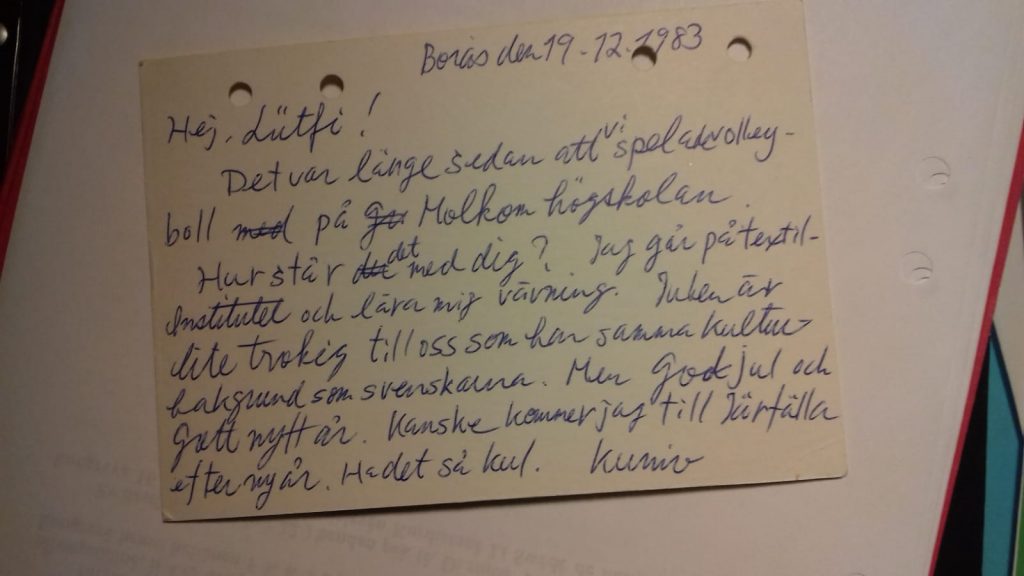 Borås den 19-12.1983
Hej, Lütfi!
Det var länge sedan att vi spelade volley-
boll med på Molkom högskolan.
Hur står det med dig? Jag går på textil-
Institutet och lära mig vävning. Julen är
lite trokig till oss som har samma kultur-
bakgrund som svenskarna. Men God jul och
Gott nytt år. Kanske kommer jag till Järfälla
efter nyår. Ha det så kul. Kunio